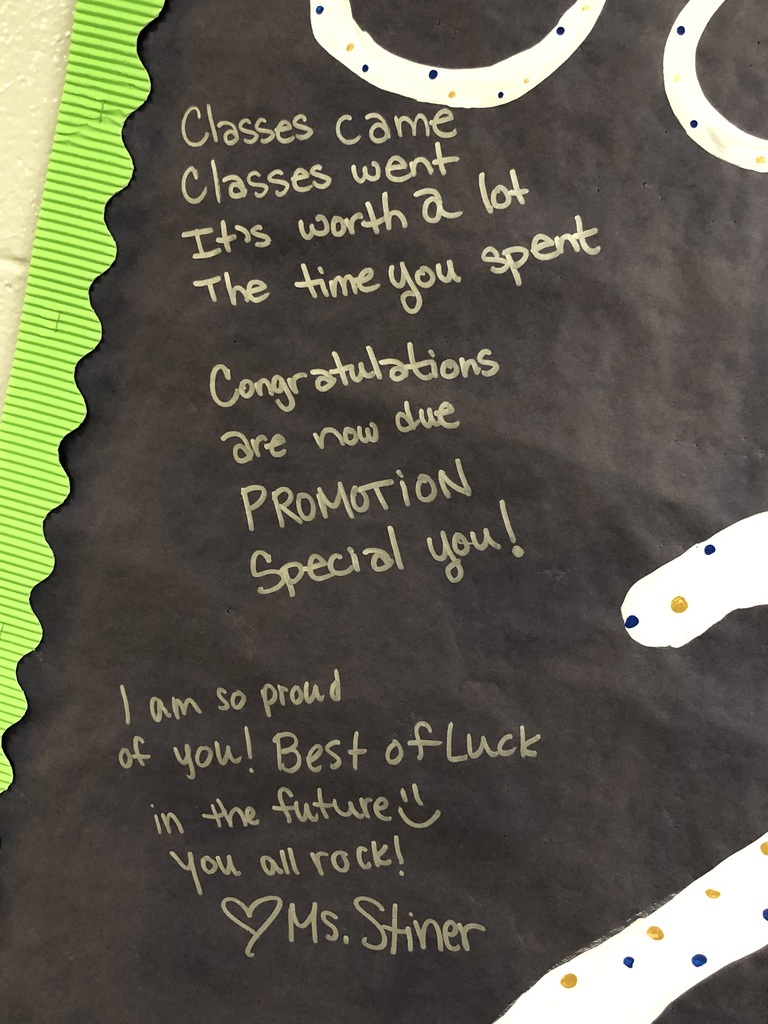 Classes came
Classes went
It's worth a lot
The time you spent
Congratulations
are now due
PROMOTION
Special you!
I am so proud
of you! Best of Luck
in the future
You all rock!
Ms. Stiner